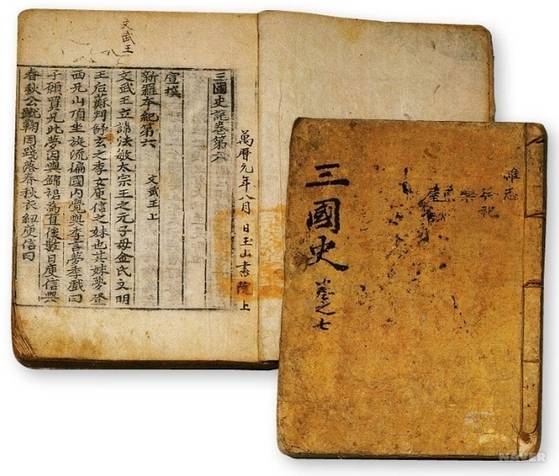 文武王
萬曆元年八月 日玉山書院上
三國史記卷第六
宣撰
新羅本紀第六
文武王上
文武王立諱法敏太宗王之元子母金氏文明
王后蘇判舒玄之季女庾信之妹也其姊夢登
西兄山頂坐旋流徧國內覺與季言夢季戲曰
予願買兄此夢因與錦裙爲直後數日庾信與
春秋公蹴鞠因踐落春秋衣紐庾信曰
雜志
三國史 卷之七
NAVER